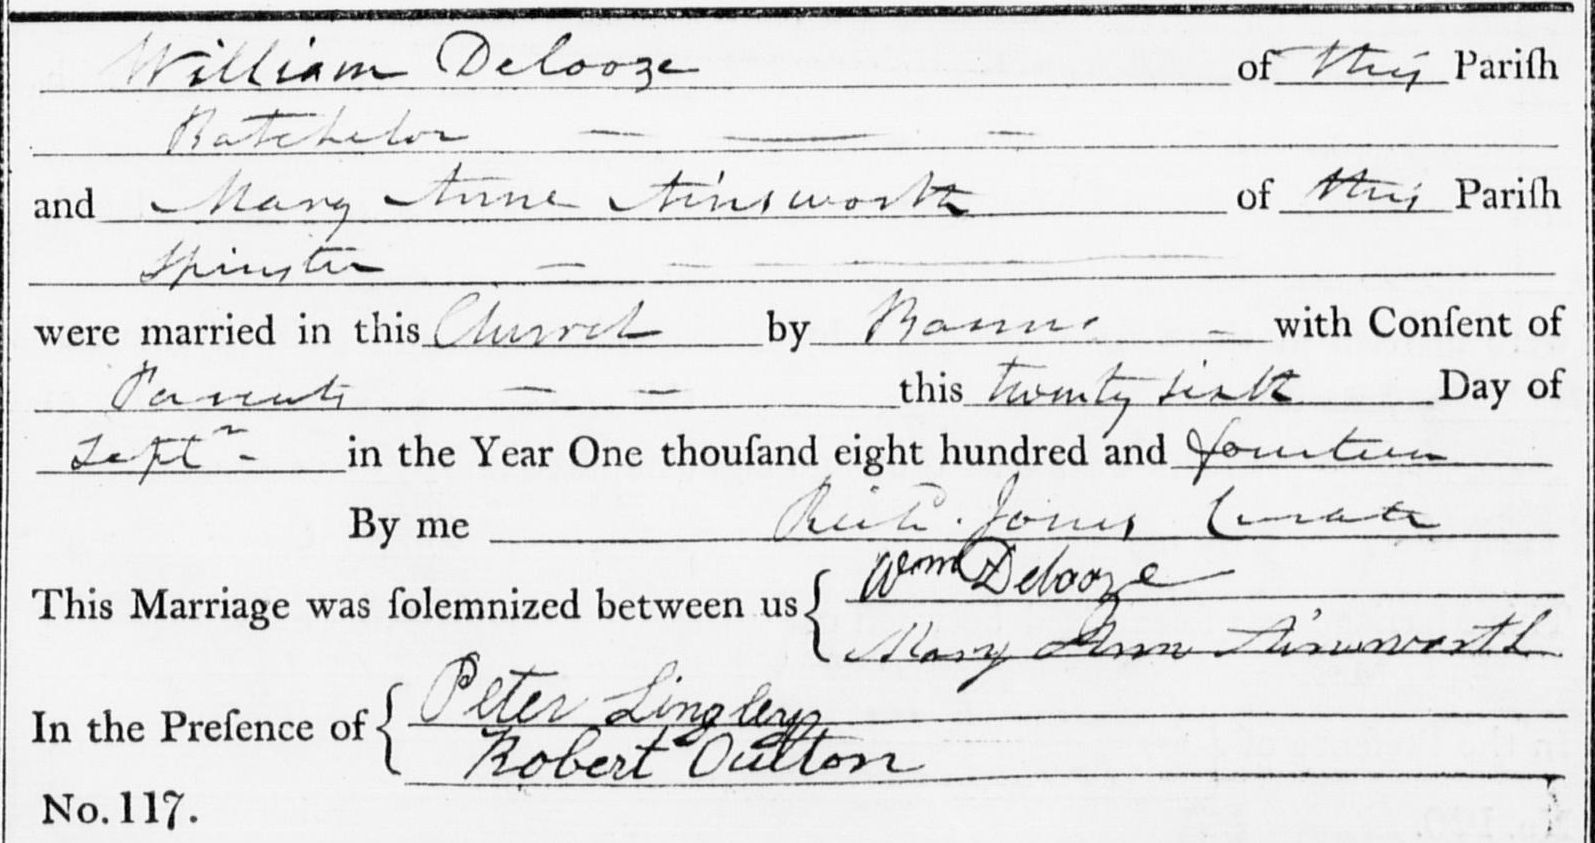 William Delooze of this Pariſh
Batchelor
and Mary Anne Ainsworth of this Pariſh
Spinster
were married in this Church by Banns with Conſent of
Parents this twenty sixth Day of
Septr in the Year One thouſand eight hundred and fourteen
By me Richd. Jones Curate
This Marriage was ſolemnized between us { Wm Delooze
Mary Ann Ainsworth
In the Preſence of { Peter Lingley
Robert Oulton
No. 117.